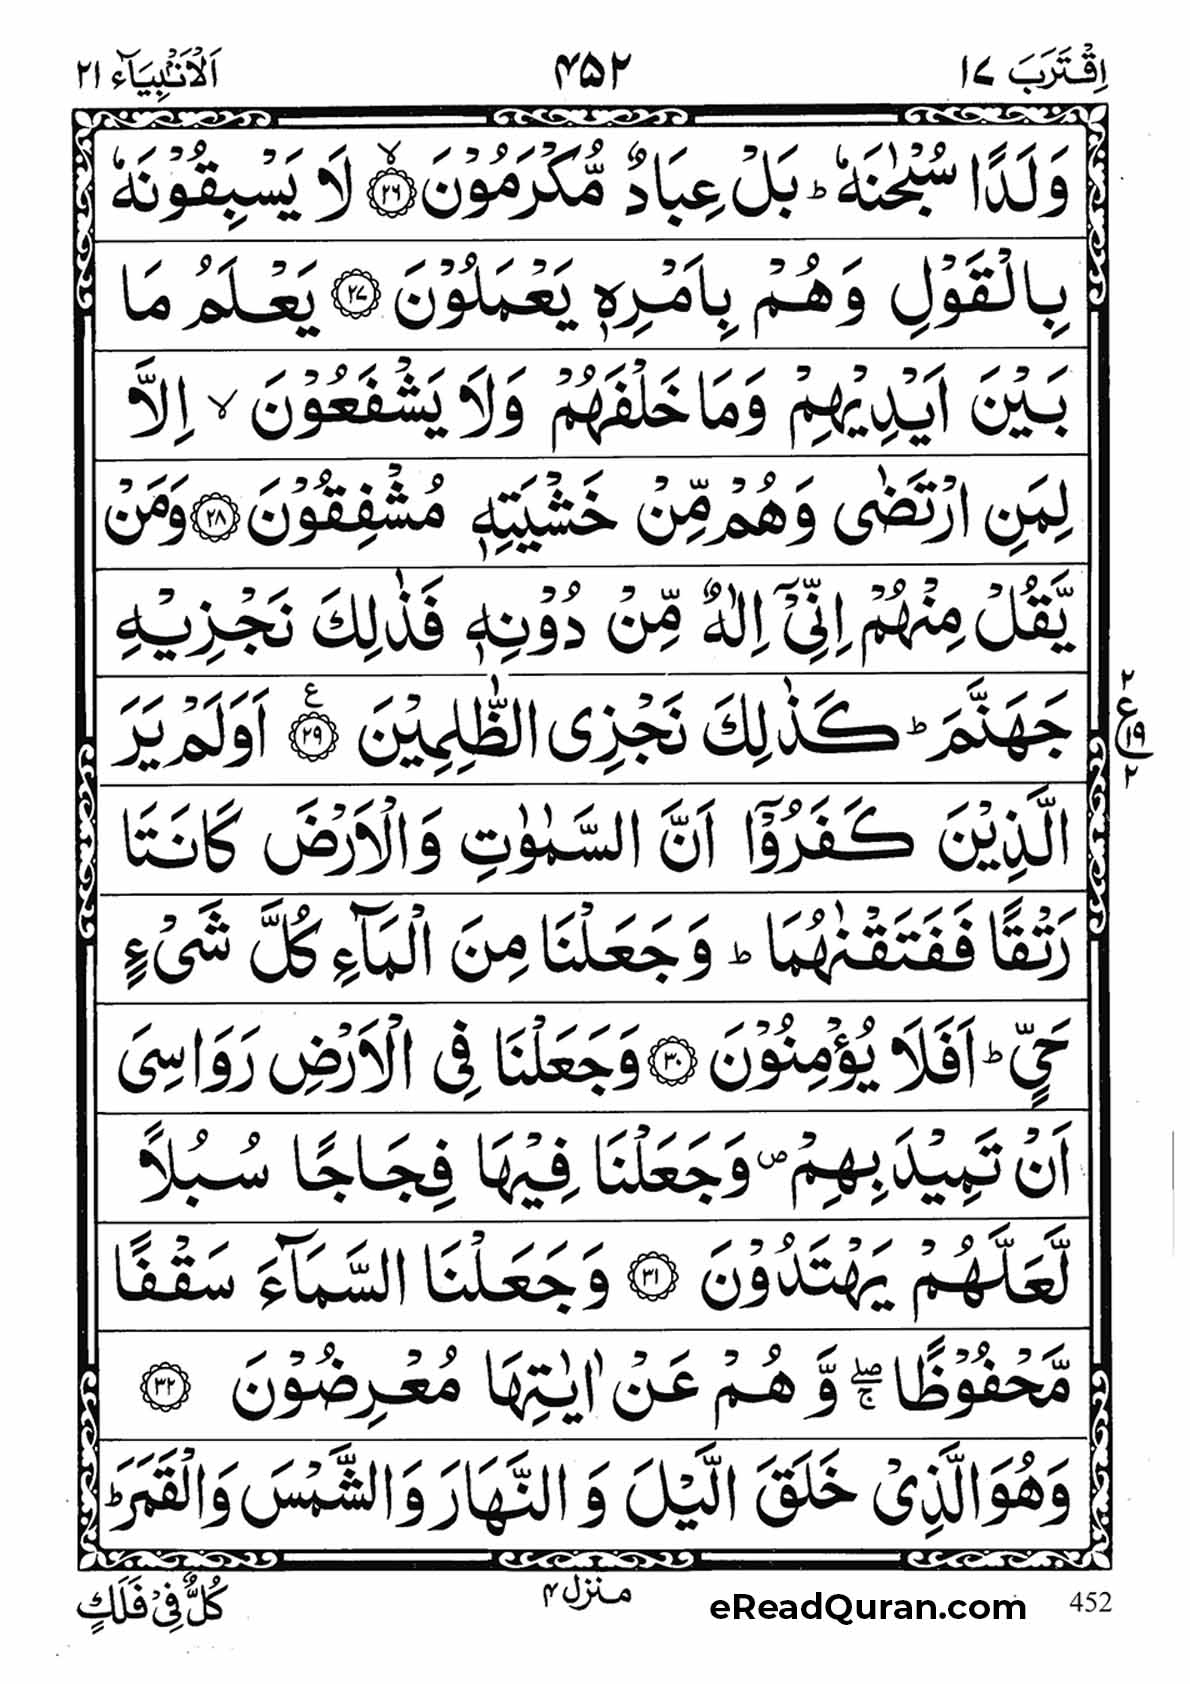 اِقْتَرَبَ ١٧
٤٥٢
اَلْاَنْۢبِيَآء ٢١
وَلَدًا سُبْحٰنَهٗ ؕ بَلْ عِبَادٌ مُّكْرَمُوْنَ ۙ‏﴿۲۶﴾ لَا يَسْبِقُوْنَهٗ
بِالْقَوْلِ وَهُمْ بِاَمْرِهٖ يَعْمَلُوْنَ ﴿۲۷﴾ يَعْلَمُ مَا
بَيْنَ اَيْدِيْهِمْ وَمَا خَلْفَهُمْ وَلَا يَشْفَعُوْنَ ۙ اِلَّا
لِمَنِ ارْتَضٰى وَهُمْ مِّنْ خَشْيَتِهٖ مُشْفِقُوْنَ ﴿۲۸﴾ وَمَنْ
يَّقُلْ مِنْهُمْ اِنِّىْۤ اِلٰهٌ مِّنْ دُوْنِهٖ فَذٰلِكَ نَجْزِيْهِ
جَهَنَّمَ ؕ كَذٰلِكَ نَجْزِى الظّٰلِمِيْنَ ﴿۲۹﴾ ع اَوَلَمْ يَرَ
٢ ع ١٩ ٢
الَّذِيْنَ كَفَرُوْۤا اَنَّ السَّمٰوٰتِ وَالْاَرْضَ كَانَتَا
رَتْقًا فَفَتَقْنٰهُمَا ؕ وَجَعَلْنَا مِنَ الْمَآءِ كُلَّ شَىْءٍ
حَىٍّ ؕ اَفَلَا يُؤْمِنُوْنَ ﴿۳۰﴾ وَجَعَلْنَا فِى الْاَرْضِ رَوَاسِىَ
اَنْ تَمِيْدَ بِهِمْ ص وَجَعَلْنَا فِيْهَا فِجَاجًا سُبُلًا
لَّعَلَّهُمْ يَهْتَدُوْنَ ﴿۳۱﴾ وَجَعَلْنَا السَّمَآءَ سَقْفًا
مَّحْفُوْظًا ۖۚ وَّهُمْ عَنْ اٰيٰتِهَا مُعْرِضُوْنَ ﴿۳۲﴾
وَهُوَ الَّذِىْ خَلَقَ الَّيْلَ وَالنَّهَارَ وَالشَّمْسَ وَالْقَمَرَ ؕ
كُلٌّ فِىْ فَلَكٍ
منزل ٤
eReadQuran.com
452